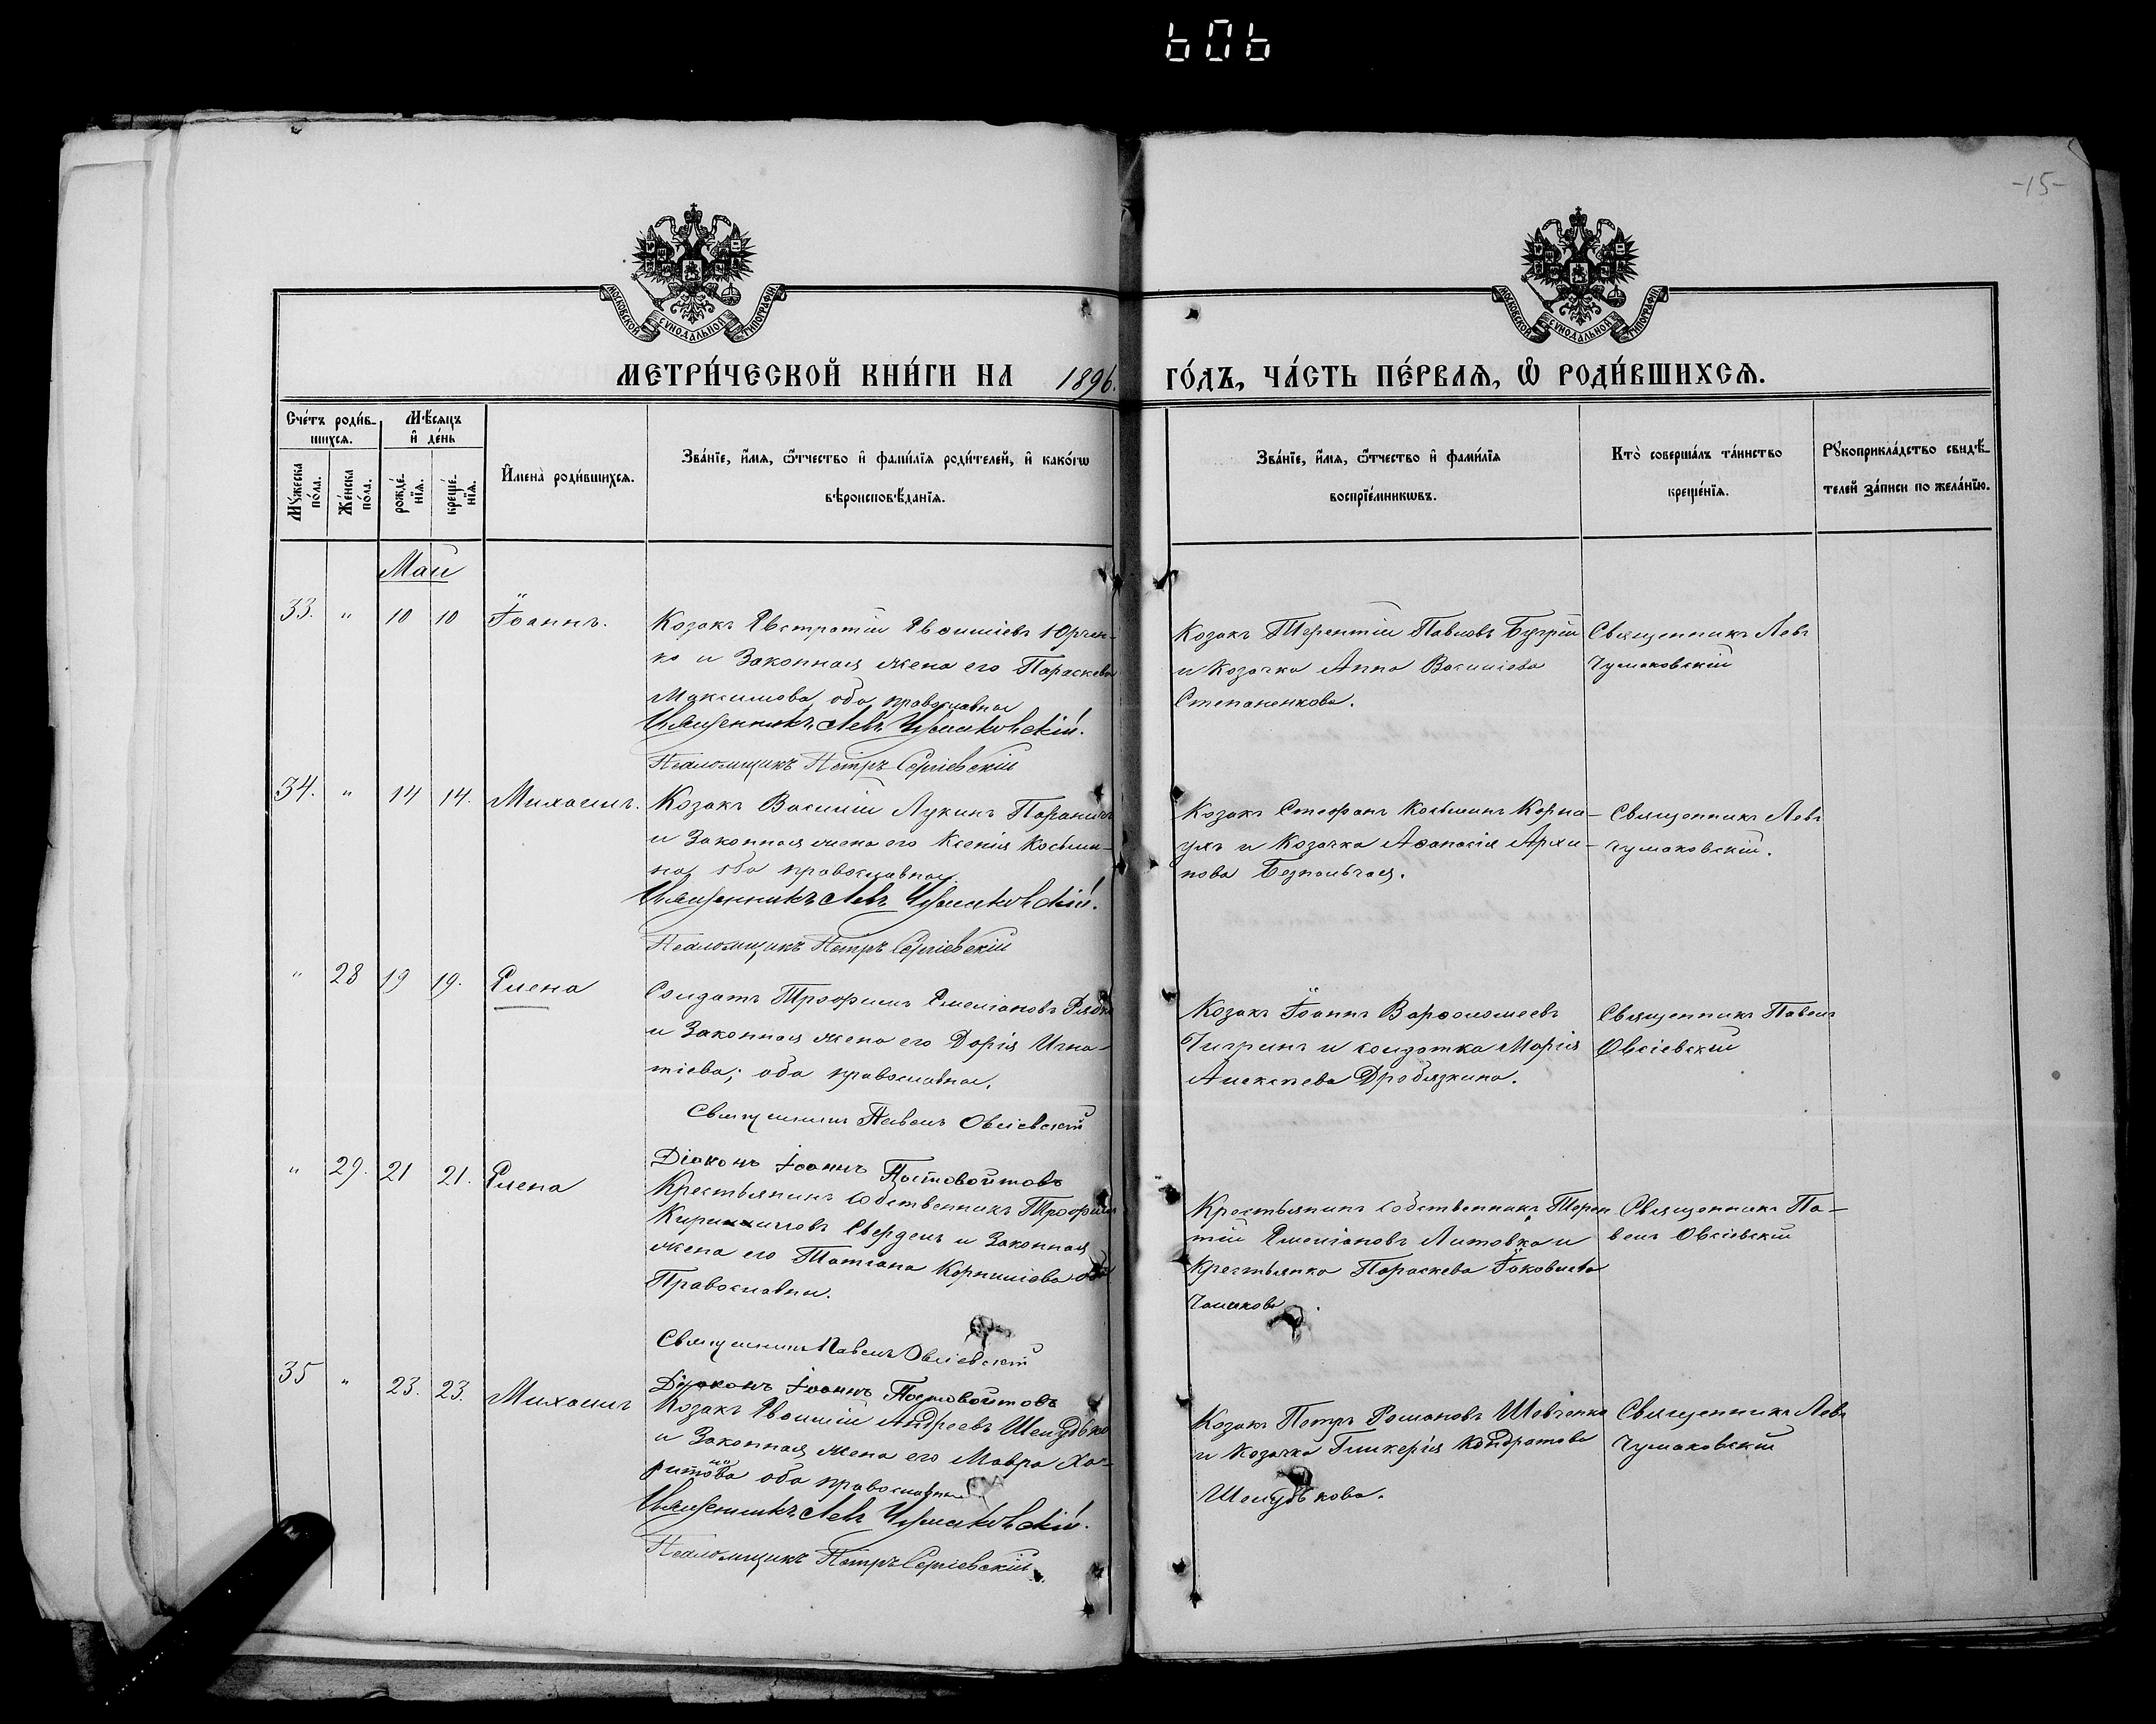 606
-15-
МОСКОВСКОЙ СѴНОДАЛЬНОЙ ТИПОГРАФІИ
МОСКОВСКОЙ СѴНОДАЛЬНОЙ ТИПОГРАФІИ
МЕТРИ́ЧЕСКОЙ КНИ́ГИ НА 1896. ГО́ДЪ, ЧА́СТЬ ПЕ́РВАѦ, Ѡ РОДИ́ВШИХСѦ.
Сче́тъ роди́в-
шихсѧ.
Мѣ́сѧцъ
и҆ де́нь
Мꙋжеска по́ла.
Же́нска по́ла.
рожде́-
нїѧ.
креще́-
нїѧ.
И҆мена̀ роди́вшихсѧ.
Зва́нїе, и҆́мѧ, ѻ҆́тчество и҆ фами́лїѧ роди́телей, и҆ како́гѡ
вѣроисповѣ́данїѧ.
Зва́нїе, и҆́мѧ, ѻ҆́тчество и҆ фами́лїѧ
воспрїе́мникѡвъ.
Кто̀ соверша́лъ та́инство
креще́нїѧ.
Рꙋкоприкла́дство свидѣ́-
телей за́писи по жела́нїю.
Май
33. " 10 10 Іоаннъ.
Козакъ Евстратій Евоиміевъ Юрчен-
ко и Законная жена его Параскева
Максимова, оба православные
Священникъ Левъ Чумаковскій.
Псаломщикъ Петръ Сергіевскій
Козакъ Терентій Павловъ Бугрій
и Козачка Анна Васильева
Степаненкова.
Священникъ Левъ
Чумаковскій
34. " 14 14. Михаилъ.
Козакъ Василій Лукинъ
и Законная жена его Ксенія Косьми-
на, оба православные.
Священникъ Левъ Чумаковскій.
Псаломщикъ Петръ Сергіевскій
Козакъ Стефанъ Косьминъ Корна-
ухъ и Козачка Аѳанасія Архи-
пова
Священникъ Левъ
Чумаковскій.
" 28 19 19. Елена
Солдатъ Трофимъ Емеліановъ
и Законная жена его Дарія Игна-
тіева; оба православные.
Священникъ Павелъ Овсіевскій
Діаконъ Іоаннъ Постовойтовъ
Козакъ Іоаннъ Варѳоломеевъ
Чигринъ и солдатка Марія
Алексѣева Дробязкина.
Священникъ Павелъ
Овсіевскій
" 29. 21 21. Елена
Крестьянинъ собственникъ Трофимъ
Кирилловъ Свердель и Законная
жена его Татіана Корниліева оба
Православны.
Священникъ Павелъ Овсіевскій
Діаконъ Іоаннъ Постовойтовъ
Крестьянинъ собственникъ Терен
тій Емеліановъ Литовка и
крестьянка Параскева Іаковлева
Священникъ Па-
велъ Овсіевскій
35 " 23. 23. Михаилъ
Козакъ Евоимій Андреевъ Шелудько
и Законная жена его Мавра Ха-
ритонова оба православные
Священникъ Левъ Чумаковскій.
Псаломщикъ Петръ Сергіевскій.
Козакъ Петръ Романовъ Шевченко
и Козачка Гликерія Кондратова
Шелудькова.
Священникъ Левъ
Чумаковскій